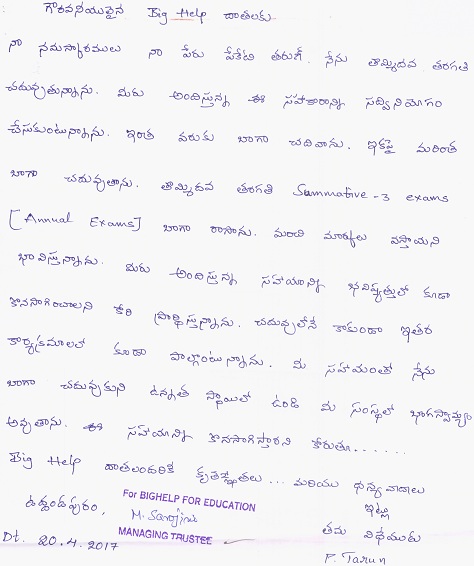 గౌరవనీయులైన Big Help దాతలకు
నా నమస్కారములు నా పేరు పేకేటి తరుణ్. నేను తొమ్మిదవ తరగతి
చదువుతున్నాను. మీరు అందిస్తున్న ఈ సహకారాన్ని సద్వినియోగం
చేసుకుంటున్నాను. ఇంత వరుకు బాగా చదివాను. ఇకపై మరింత
బాగా చదువుతాను. తొమ్మిదవ తరగతి Summative-3 exams
[Annual Exams] బాగా రాసాను. మంచి మార్కులు వస్తాయని
భావిస్తున్నాను. మీరు అందిస్తున్న సహాయాన్ని భవిష్యత్తులో కూడా
కొనసాగించాలని కోరి ప్రార్థిస్తున్నాను. చదువులోనే కాకుండా ఇతర
కార్యక్రమాలలో కూడా పాల్గొంటున్నాను. మీ సహాయంతో నేను
బాగా చదువుకుని ఉన్నత స్థాయిలో ఉండి మీ సంస్థలో భాగస్వామ్యం
అవుతాను. ఈ సహాయాన్ని కొనసాగిస్తారని కోరుతూ......
Big Help దాతలందరికీ కృతజ్ఞతలు... మరియు ధన్యవాదాలు
ఉద్దండపురం, ఇట్లు
For BIGHELP FOR EDUCATION
M. Sarojini
తమ విధేయుడు
MANAGING TRUSTEE
Dt. 20.4.2017 P. Tarun